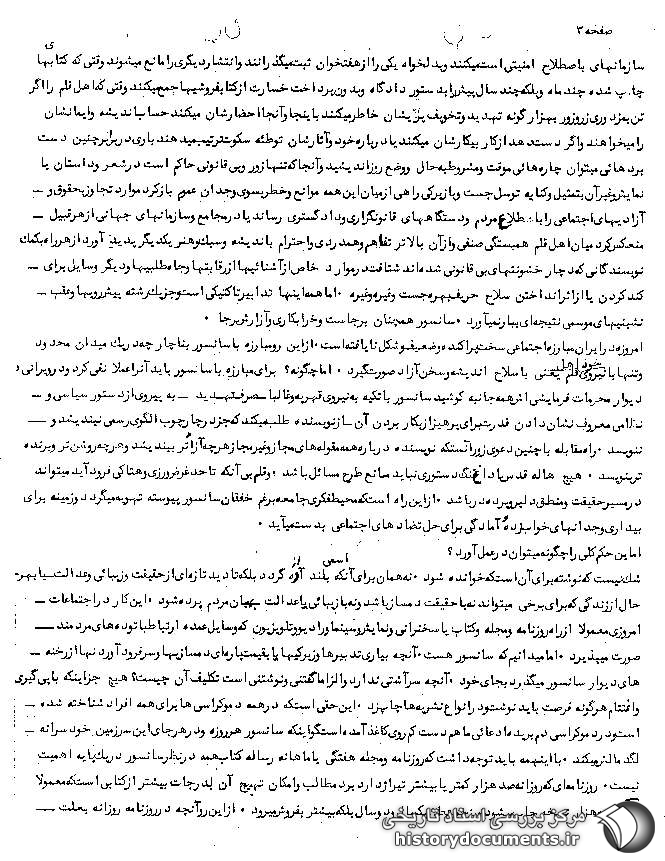 صفحه ۳
سازمانهای باصطلاح امنیتی است میکنند و بدلخواه یکی را از هفتخوان ثبت میگذرانند و انتشار دیگری را مانع میشوند وقتی که کتابها
چاپ شده چند ماه و بلکه چند سال پیش را بدستور دادگاه و بدون پرداخت خسارت از کتابفروشیها جمع میکنند وقتی که اهل قلم را اگر
تن به زدوری زروزور بهزار گونه تهدید و تخویف پریشان خاطر میکنند با اینجا و آنجا احضارشان میکنند حساب اندیشه و ایمانشان
را میخواهند و اگر دست دهد از کار بیکارشان میکنند یا درباره خود و آثارشان توطئه سکوت ترتیب میدهند باری در برابر چنین دست
بردهائی میتوان چاره هائی موقت و مشروط به حال و وضع روز اندیشید و آنجا که تنها زور و بی قانونی حاکم است در شعر و داستان یا
نمایش و غیر آن به تمثیل و کنایه توسل جست و با زیرکی راهی از میان این همه موانع و خطر بسوی وجدان عموم باز کرد موارد تجاوز بحقوق و ــ
آزادیهای اجتماعی را باطلاع مردم و دستگاههای قانونگزاری و دادگستری رساند یا در مجامع و سازمانهای جهانی از هر قبیل ــ
منعکس کرد میان اهل قلم همبستگی صنفی و از آن بالاتر تفاهم و همدردی و احترام با ندیشه و سبک و هنر یکدیگر پدید آورد از هر راه بکمک
نویسندگانی که دچار خشونتهای بی قانونی شده اند شتافت در موارد خاص از آشنائیها از رقابتها و جاه طلبیها و دیگر وسایل برای ــ
کند کردن یا از اثر انداختن سلاح حریف بهره جست و غیره و غیره ۰ اما همه اینها تدابیر تاکتیکی است و جز یک رشته پیش رویها و عقب ــ
نشینیهای موسمی نتیجه ای ببار نمیآورد ۰ سانسور همچنان برجاست و خرابکاری و آزارش برجا ۰
امروزه در ایران مبارزه اجتماعی سخت پراکنده و ضعیف و شکل نایافته است ۰ از این رو مبارزه با سانسور بناچار چه در یک میدان محدود
و تنها با نیروی خود اهل قلم یعنی با سلاح اندیشه و سخن آزاد صورت گیرد ۰ اما چگونه؟ برای مبارزه با سانسور باید آنرا عملا نفی کرد و در ویرانی
دیوار محرمات فرمایشی از هر جانبه کوشید سانسور با تکیه به نیروی قهریه و غالبا صرف تهدید ــ به پیروی از دستور سیاسی و ــ
نظامی معروف نشان دادن قدرت برای پرهیز از بکار بردن آن ــ از نویسنده طلب میکند که جز در چارچوب الگوی رسمی نیندیشد و ــ
ننویسد ۰ راه مقابله با چنین دعوی زور آنستکه نویسنده درباره همه مقوله های مجاز و غیر مجاز هر چه آزادتر بیندیشد و هر چه روشن تر و برنده
تر بنویسد ۰ هیچ هاله قدس یا داغ ننگ دستوری نباید مانع طرح مسائل باشد ۰ و قلم بی آنکه تا حد غرض ورزی و هتاکی فرود آید میتواند
در مسیر حقیقت و منطق دلیر و پرده در باشد ۰ از این راه است که محیط فکری جامعه برغم خفقان سانسور پیوسته تهویه میگردد و زمینه برای
بیداری وجدانهای خواب زده و آمادگی برای حل تضادهای اجتماعی بدست میآید ۰
اما این حکم کلی را چگونه میتوان در عمل آورد؟
شک نیست که نوشته برای آنست که خوانده شود ۰ نه همان برای آنکه بلند آوازه گردد بلکه تا دید تازه ای از حقیقت و زیبائی و عدالت ــ یا بهر ــ
حال از زندگی که برای برخی میتواند نه با حقیقت دمساز باشد و نه با زیبائی یا عدالت ــ بمیان مردم برده شود ۰ این کار در اجتماعات ــ
امروزی معمولا از راه روزنامه و مجله و کتاب یا سخنرانی و نمایش و سینما و رادیو و تلویزیون که وسایل عمده ارتباط با توده های مردمند ــ
صورت میپذیرد ۰ اما میدانیم که سانسور هست ۰ آنچه بیاری تدبیرها و زیرکیها یا بقیمت پاره ای دمسازیها و سر فرود آوردنها از رخنه ــ
های دیوار سانسور میگذرد بجای خود ۰ آنچه سر آشتی ندارد و الزاما گفتنی و نوشتنی است تکلیف آن چیست؟ هیچ جز اینکه با پی گیری
و اغتنام هر گونه فرصت باید نوشت و در انواع نشریه ها چاپ زد ۰ این حقی است که در همه دموکراسی ها برای همه افراد شناخته شده ــ
است و در دموکراسی دم بریده ادعائی ما هم دست کم روی کاغذ آمده است گو اینکه سانسور هر روزه و در هر جای این سرزمین خودسرانه ــ
لگدمالش میکند ۰ با اینهمه باید توجه داشت که روزنامه و مجله هفتگی یا ماهانه رساله کتاب همه در نظر سانسور در یک پایه اهمیت
نیست ۰ روزنامه ای که روزانه صد هزار کمتر یا بیشتر تیراژ دارد برد مطالب و امکان تهییج آن بدرجات بیشتر از کتابی است که معمولا
و سال بلکه بیشتر بفروش میرود ۰ از این رو آنچه در روزنامه روزانه بعلت ــ
مرکز بررسی اسناد تاریخی
historydocuments.ir